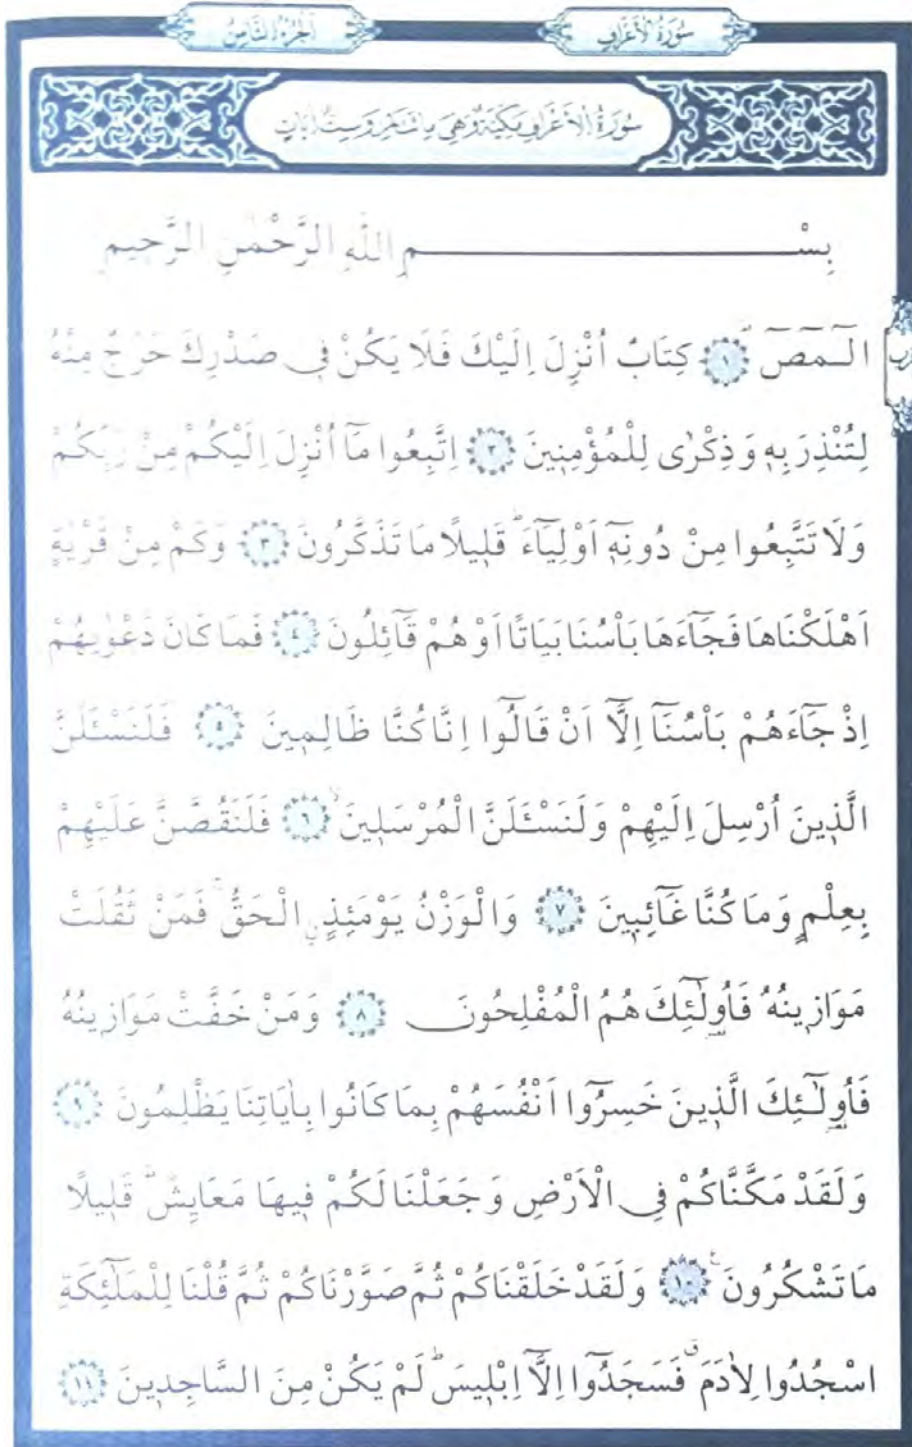 سُورَةُ الْاَعْرَافِ
اَلْجُزْءُ الثَّامِنُ
سُورَةُ الْاَعْرَافِ مَكِّيَّةٌ وَهِيَ مِائَتَانِ وَسِتُّ اٰيَاتٍ
بِسْمِ اللّٰهِ الرَّحْمٰنِ الرَّحِيمِ
الٓمٓصٓ ۚ ﴿١﴾ كِتَابٌ اُنْزِلَ اِلَيْكَ فَلَا يَكُنْ فٖي صَدْرِكَ حَرَجٌ مِنْهُ
لِتُنْذِرَ بِهٖ وَذِكْرٰى لِلْمُؤْمِنٖينَ ﴿٢﴾ اِتَّبِعُوا مَٓا اُنْزِلَ اِلَيْكُمْ مِنْ رَبِّكُمْ
وَلَا تَتَّبِعُوا مِنْ دُونِهٖٓ اَوْلِيَٓاءَؕ قَلٖيلًا مَا تَذَكَّرُونَ ﴿٣﴾ وَكَمْ مِنْ قَرْيَةٍ
اَهْلَكْنَاهَا فَجَٓاءَهَا بَاْسُنَا بَيَاتًا اَوْ هُمْ قَٓائِلُونَ ﴿٤﴾ فَمَا كَانَ دَعْوٰيهُمْ
اِذْ جَٓاءَهُمْ بَاْسُنَٓا اِلَّٓا اَنْ قَالُٓوا اِنَّا كُنَّا ظَالِمٖينَ ﴿٥﴾ فَلَنَسْـَٔلَنَّ
الَّذٖينَ اُرْسِلَ اِلَيْهِمْ وَلَنَسْـَٔلَنَّ الْمُرْسَلٖينَۙ ﴿٦﴾ فَلَنَقُصَّنَّ عَلَيْهِمْ
بِعِلْمٍ وَمَا كُنَّا غَٓائِبٖينَ ﴿٧﴾ وَالْوَزْنُ يَوْمَئِذٍۨ الْحَقُّۚ فَمَنْ ثَقُلَتْ
مَوَازٖينُهُ فَاُو۬لٰٓئِكَ هُمُ الْمُفْلِحُونَ ﴿٨﴾ وَمَنْ خَفَّتْ مَوَازٖينُهُ
فَاُو۬لٰٓئِكَ الَّذٖينَ خَسِرُٓوا اَنْفُسَهُمْ بِمَا كَانُوا بِاٰيَاتِنَا يَظْلِمُونَ ﴿٩﴾
وَلَقَدْ مَكَّنَّاكُمْ فِي الْاَرْضِ وَجَعَلْنَا لَكُمْ فٖيهَا مَعَايِشَؕ قَلٖيلًا
مَا تَشْكُرُونَ۟ ﴿١٠﴾ وَلَقَدْ خَلَقْنَاكُمْ ثُمَّ صَوَّرْنَاكُمْ ثُمَّ قُلْنَا لِلْمَلٰٓئِكَةِ
اسْجُدُوا لِاٰدَمَۗ فَسَجَدُٓوا اِلَّٓا اِبْلٖيسَؕ لَمْ يَكُنْ مِنَ السَّاجِدٖينَ ﴿١١﴾